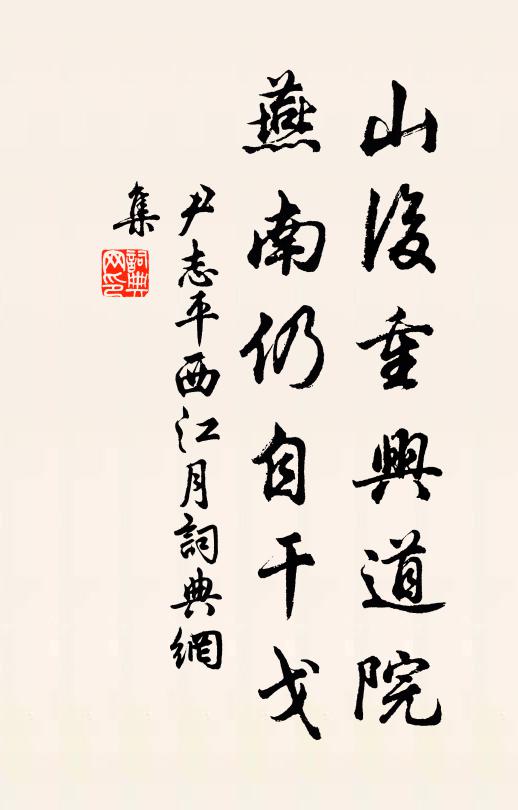 山後重興道院
燕南仍自干戈
尹志平西江月詞典網
集
詞典
网印